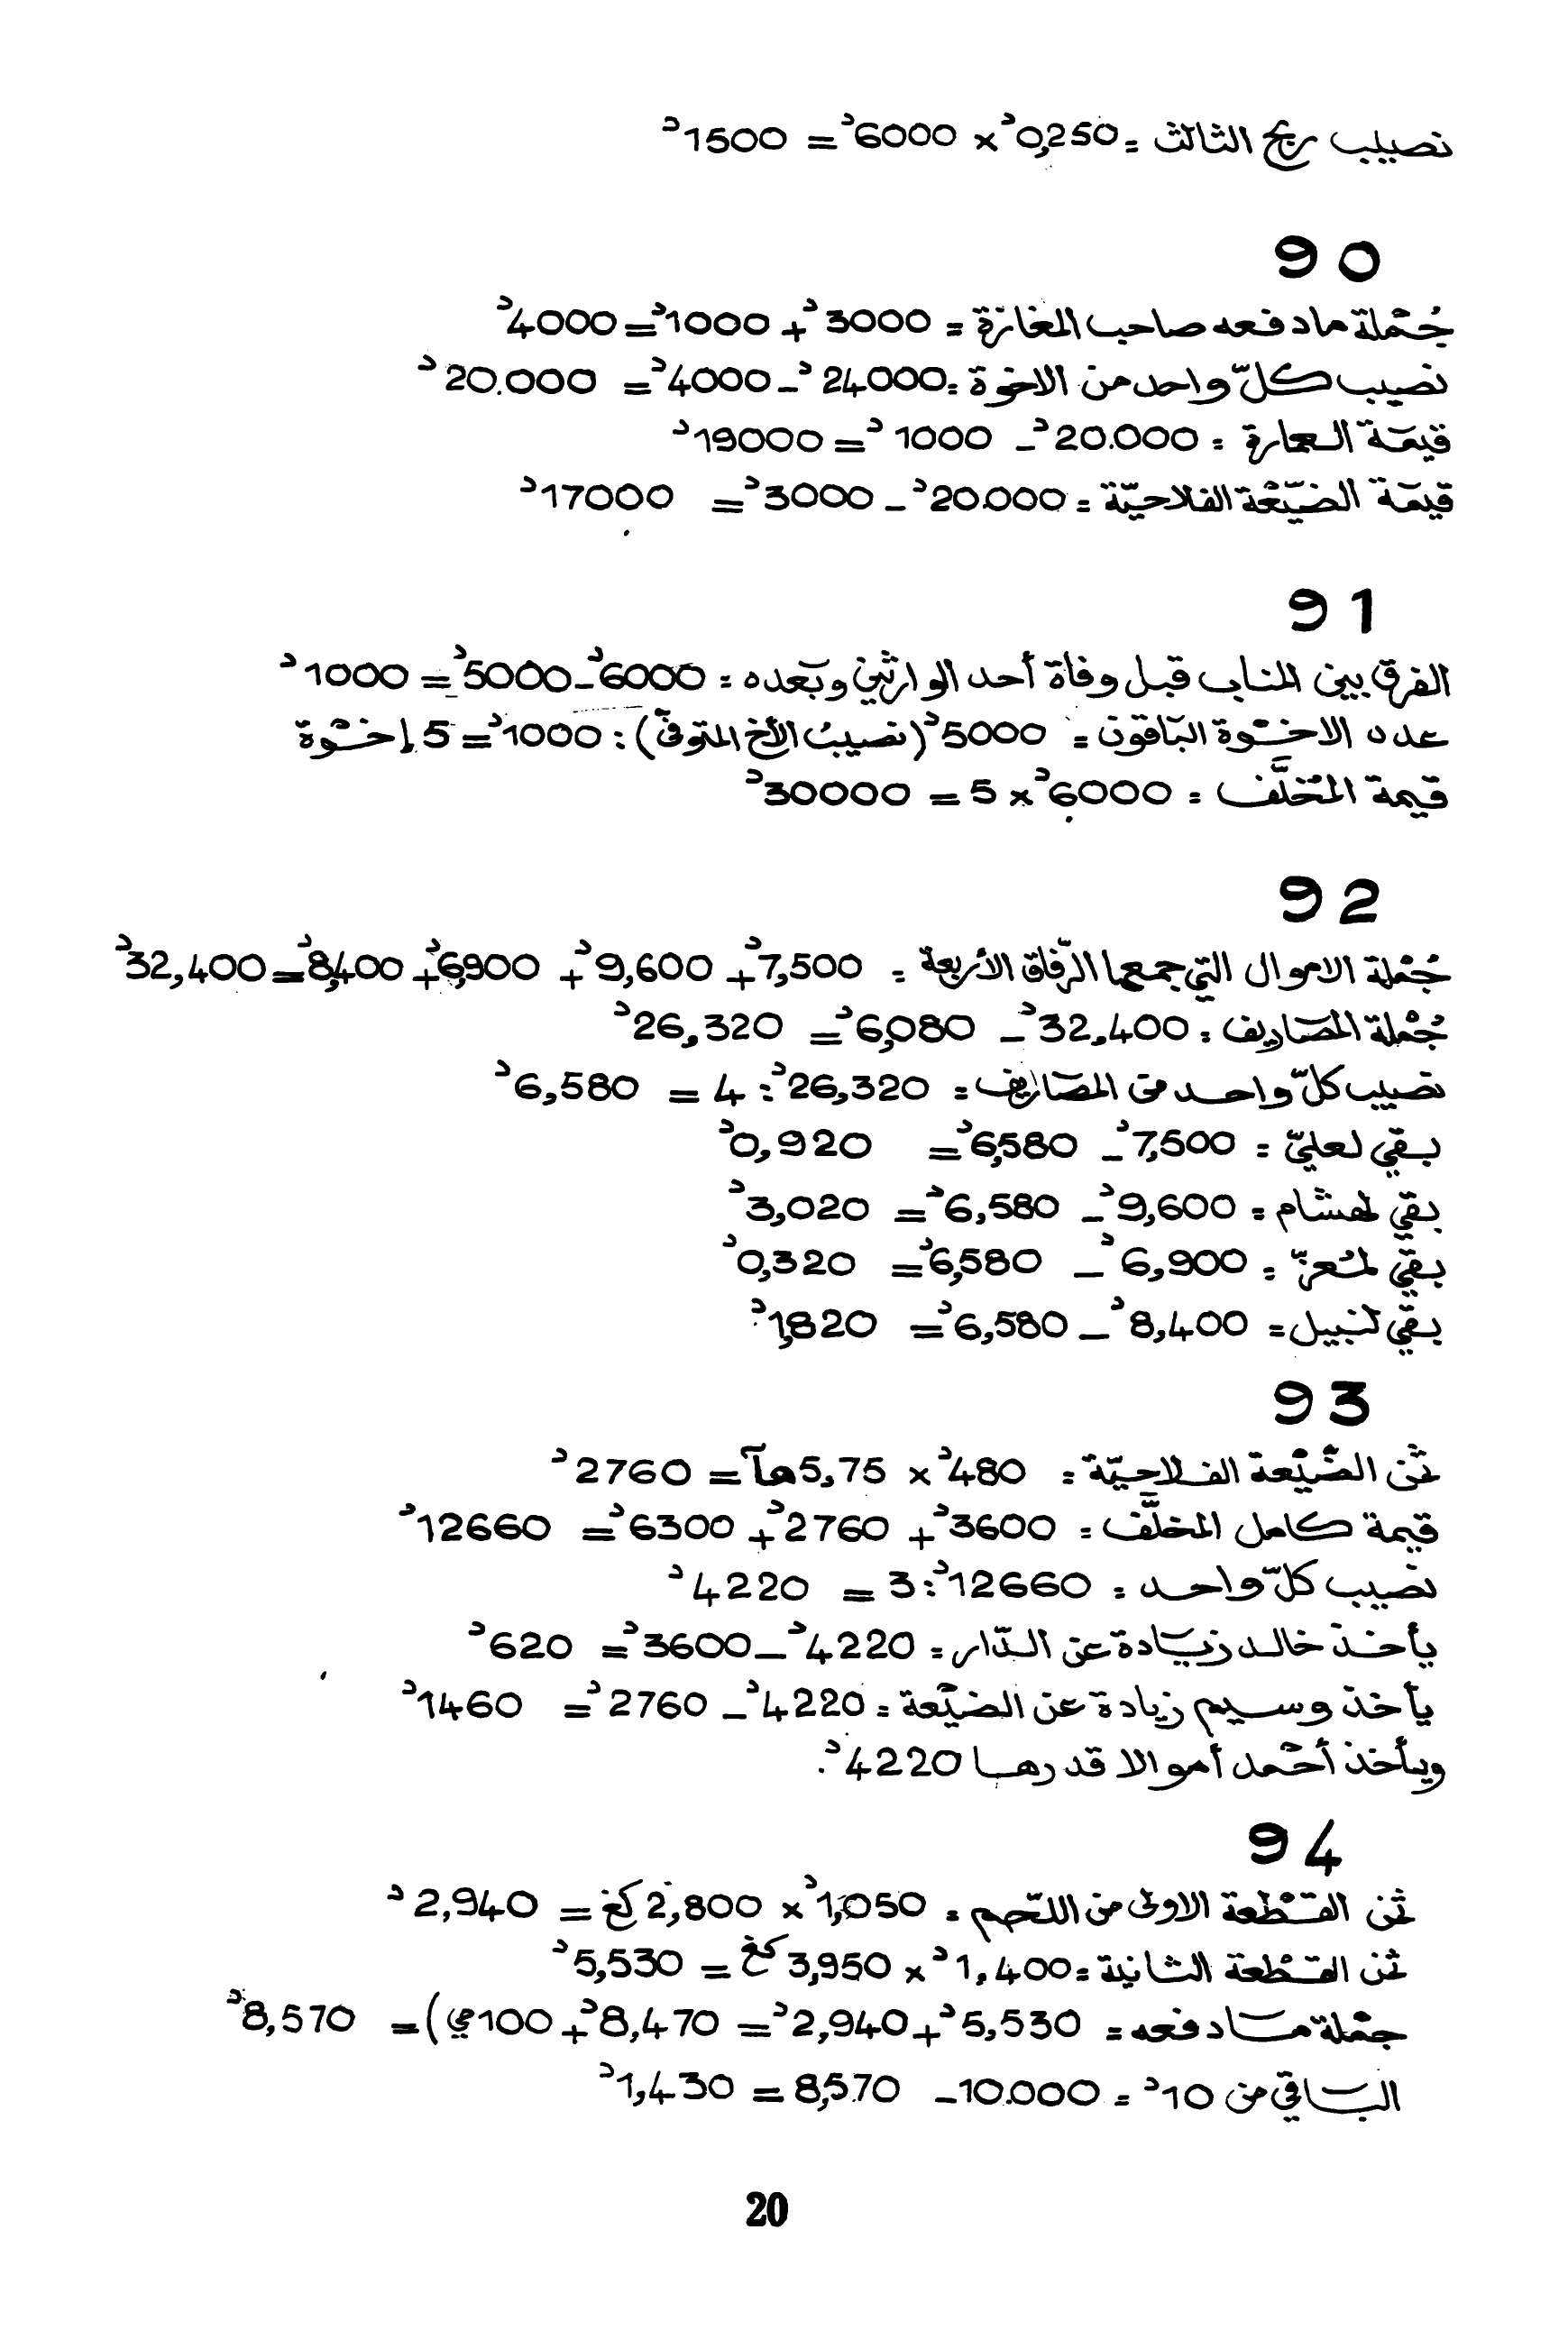 نصيب ربح الثالث = 0,250د × 6000د = 1500د
90
جُمْلة ما دفعه صاحب المغازة = 3000د + 1000د = 4000د
نصيب كلّ واحد من الاخوة = 24000د - 4000د = 20.000د
قيمَة العمارة = 20.000د - 1000د = 19000د
قيمَة الضّيْعَة الفلاحيّة = 20.000د - 3000د = 17000د
91
الفرق بين المناب قبل وفاة أحد الوارثين وبَعده = 6000د - 5000د = 1000د
عدد الاخْوة البَاقون = 5000د (نصيبُ الأخ المتوفّى) : 1000د = 5 إخْوة
قيمة المُخلَّف = 6000د × 5 = 30000د
92
جُمْلة الاموال التي جمعها الرّفاق الأربعة = 7,500د + 9,600د + 6,900د + 8,400د = 32,400د
جُمْلة المصَاريف = 32,400د - 6,080د = 26,320د
نصيب كلّ واحد من المصَاريف = 26,320د : 4 = 6,580د
بقي لعليّ = 7,500د - 6,580د = 0,920د
بقي لهشام = 9,600د - 6,580د = 3,020د
بقي لمُعزّ = 6,900د - 6,580د = 0,320د
بقي لنبيل = 8,400د - 6,580د = 1,820د
93
ثمن الضّيْعة الفلاحيّة = 480د × 5,75هآ = 2760د
قيمة كامل المخلَّف = 3600د + 2760د + 6300د = 12660د
نصيب كلّ واحد = 12660د : 3 = 4220د
يأخذ خالد زيَادة عن الدّار = 4220د - 3600د = 620د
يأخذ وسيم زيادة عن الضيْعة = 4220د - 2760د = 1460د
ويأخذ أحْمد أموالا قدرها 4220د.
94
ثمن القطْعة الاولى من اللّحم = 1,050د × 2,800 كغ = 2,940د
ثمن القطْعة الثانية = 1,400د × 3,950 كغ = 5,530د
جمْلة مَا دفعه = 5,530د + 2,940د = 8,470د + 100مي) = 8,570د
البَاقي من 10د = 10.000 - 8,570 = 1,430د
20